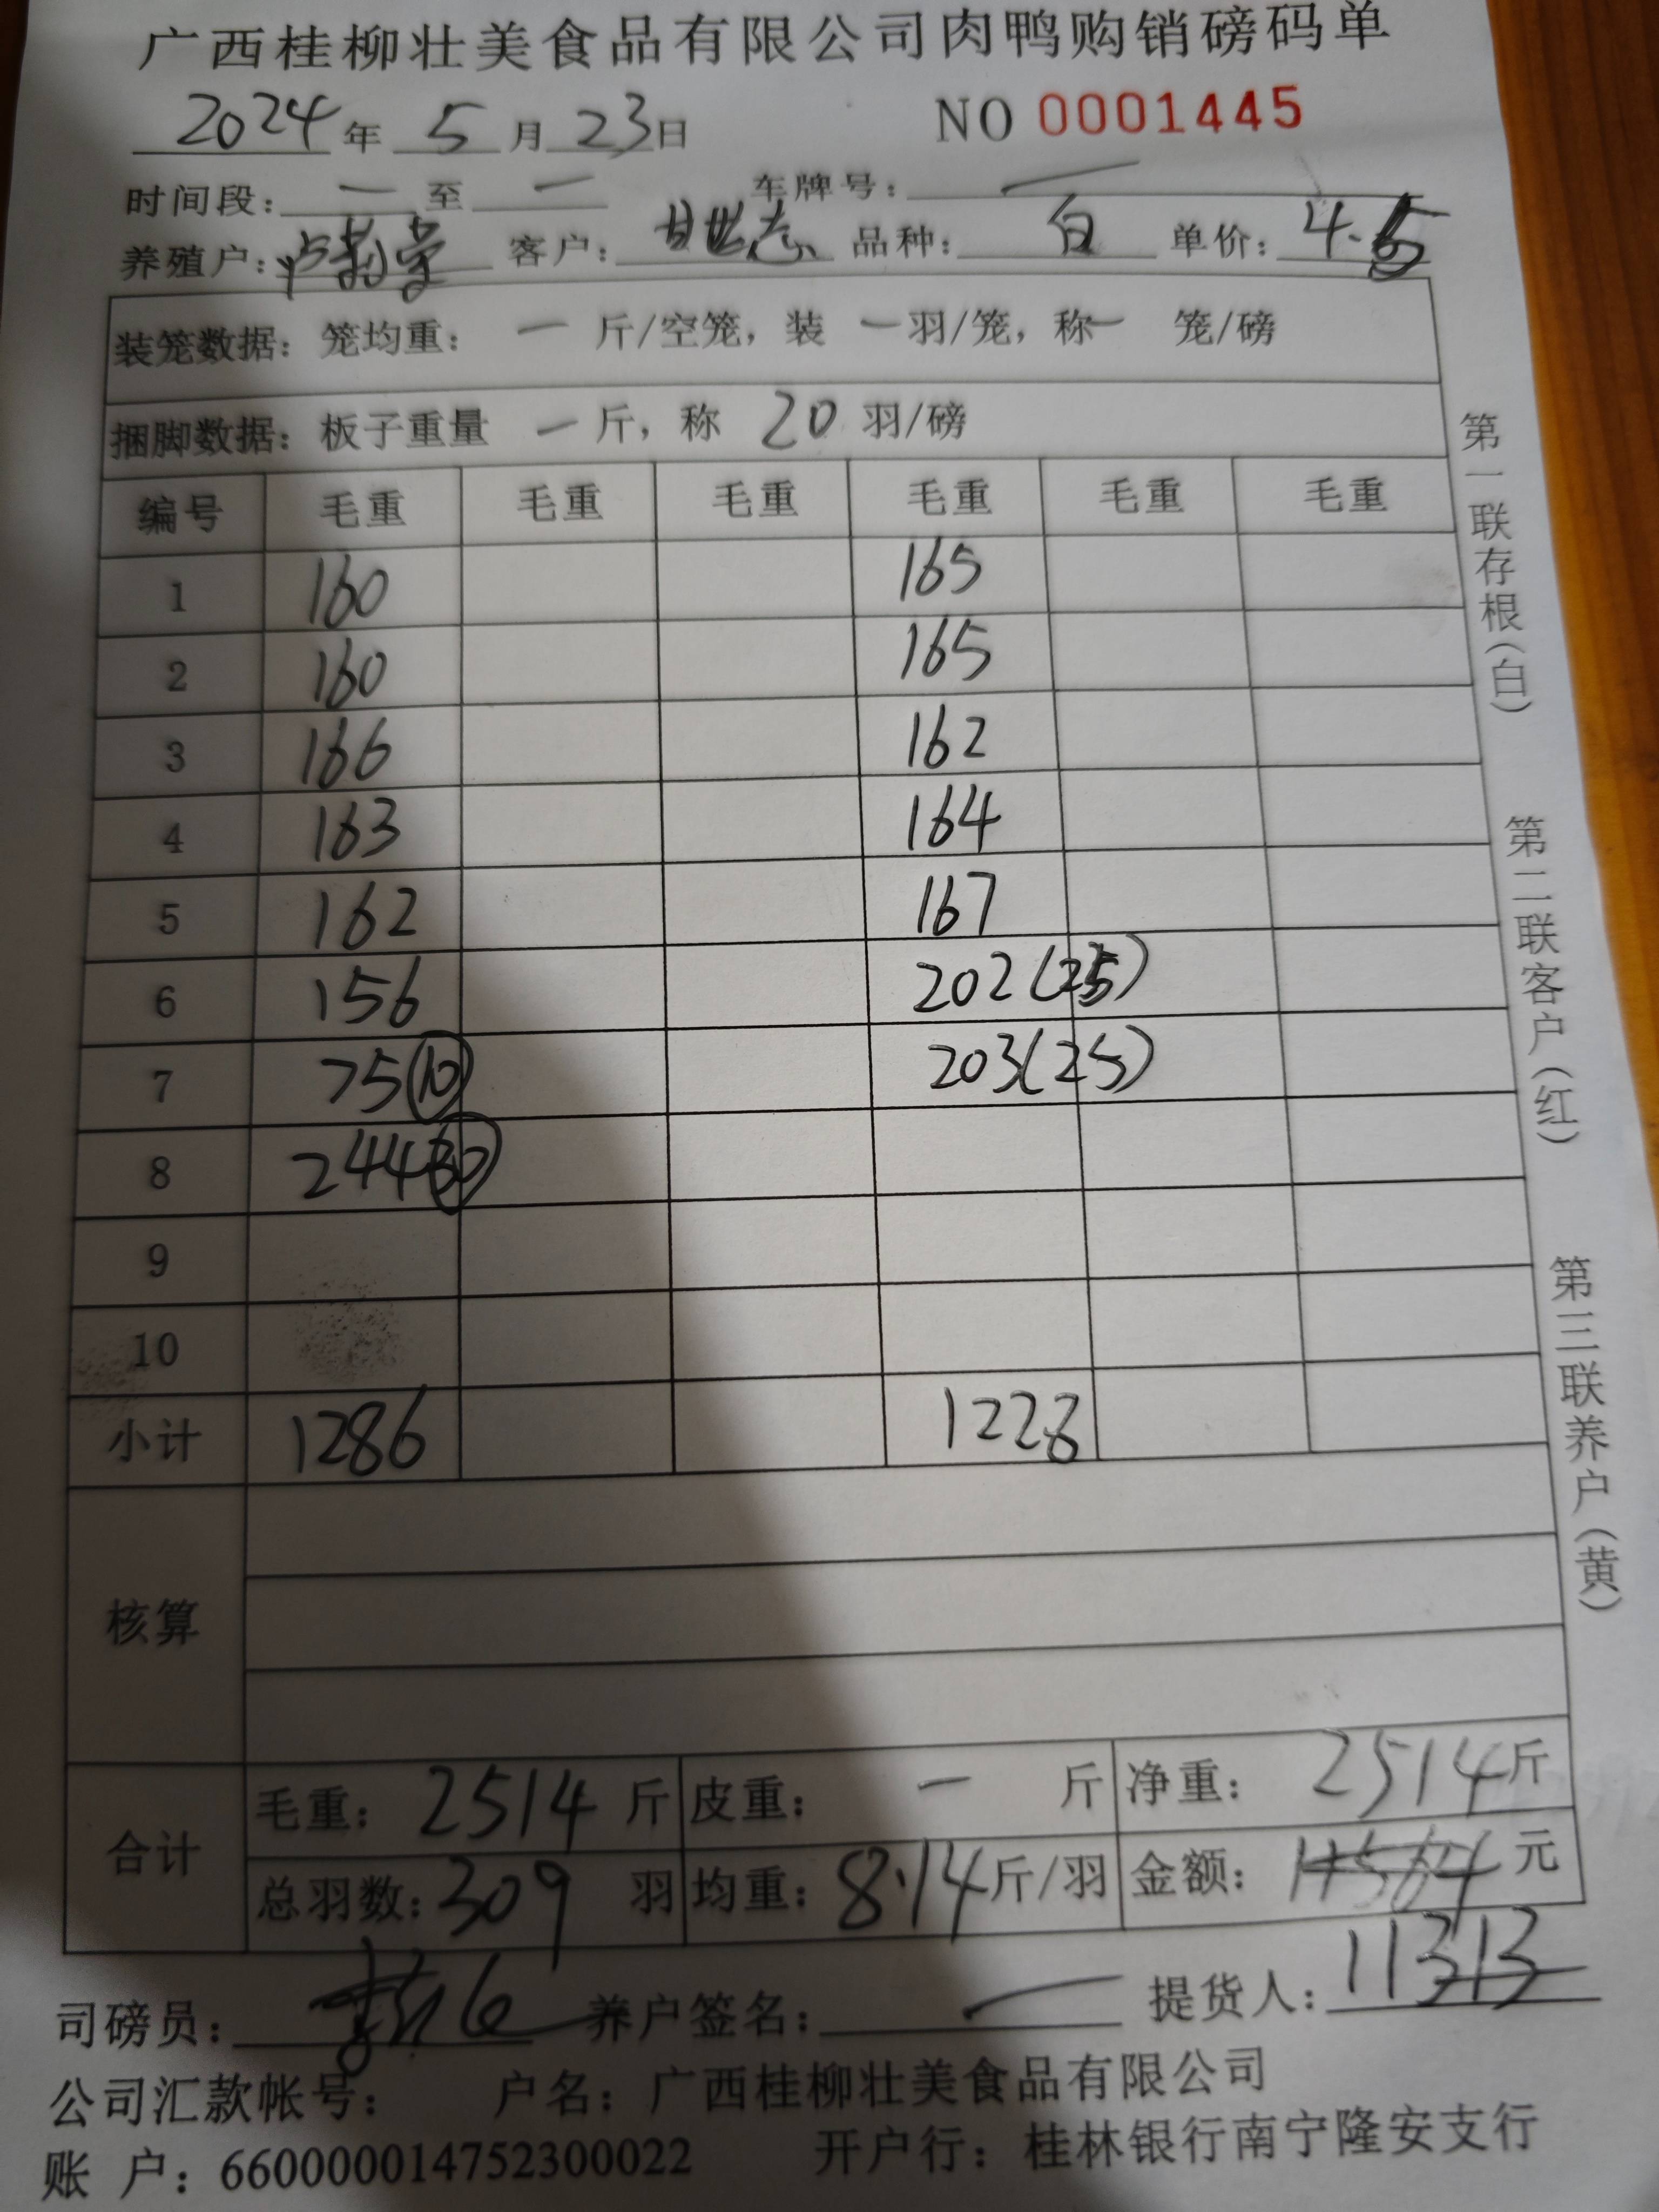 广西桂柳壮美食品有限公司肉鸭购销磅码单
2024年 5月 23日 NO 0001445
时间段：一 至 一 车牌号：一
养殖户： 客户：甘世志 品种：白 单价：4.5
装笼数据：笼均重： 一 斤/空笼，装 一羽/笼，称一 笼/磅
捆脚数据：板子重量 一斤，称 20 羽/磅
编号 毛重 毛重 毛重 毛重 毛重 毛重
1 160 165
2 160 165
3 166 162
4 163 164
5 162 167
6 156 202(25)
7 75⑩ 203(25)
8 244(30)
9
10
小计 1286 1228
核算
合计 毛重：2514斤 皮重：一 斤 净重：2514斤
总羽数：309 羽 均重：8.14斤/羽 金额： 元
11313
司磅员： 养户签名：一 提货人：
公司汇款帐号： 户名：广西桂柳壮美食品有限公司
账 户：660000014752300022 开户行：桂林银行南宁隆安支行
第一联存根（白）
第二联客户（红）
第三联养户（黄）